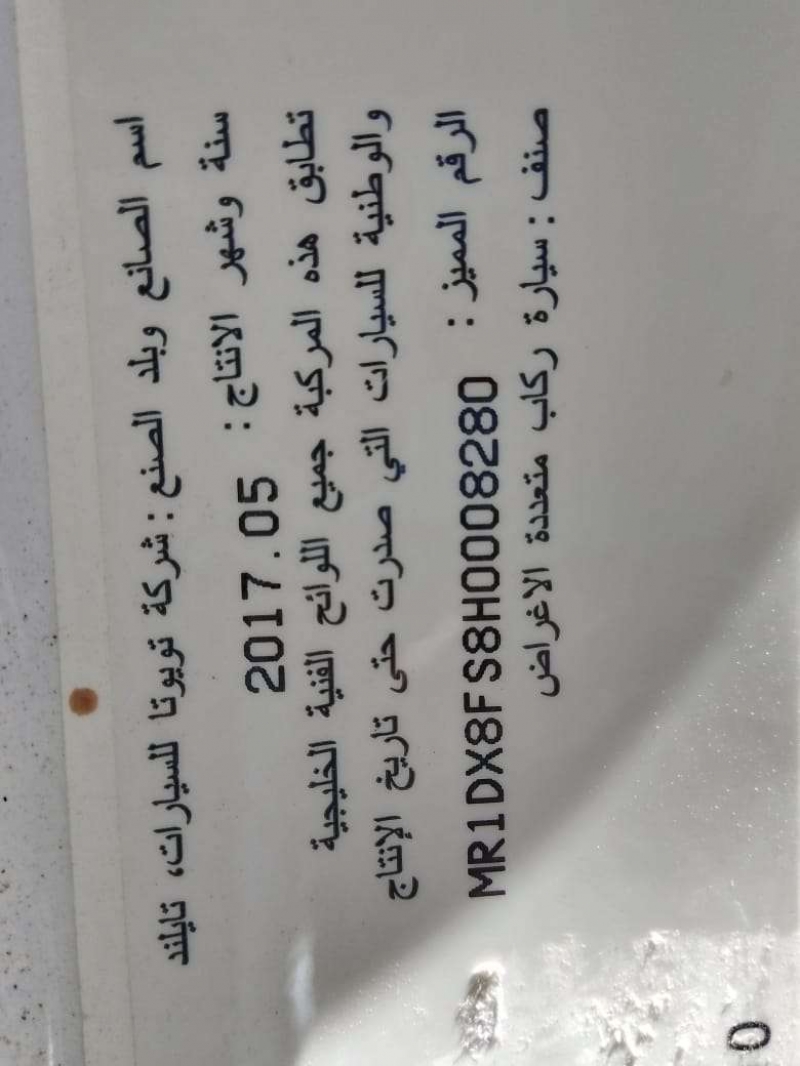 اسم الصانع وبلد الصنع : شركة تويوتا للسيارات، تايلند
سنة وشهر الانتاج : 2017.05
تطابق هذه المركبة جميع اللوائح الفنية الخليجية
والوطنية للسيارات التي صدرت حتى تاريخ الإنتاج
الرقم المميز : MR1DX8FS8H0008280
صنف : سيارة ركاب متعددة الاغراض
0